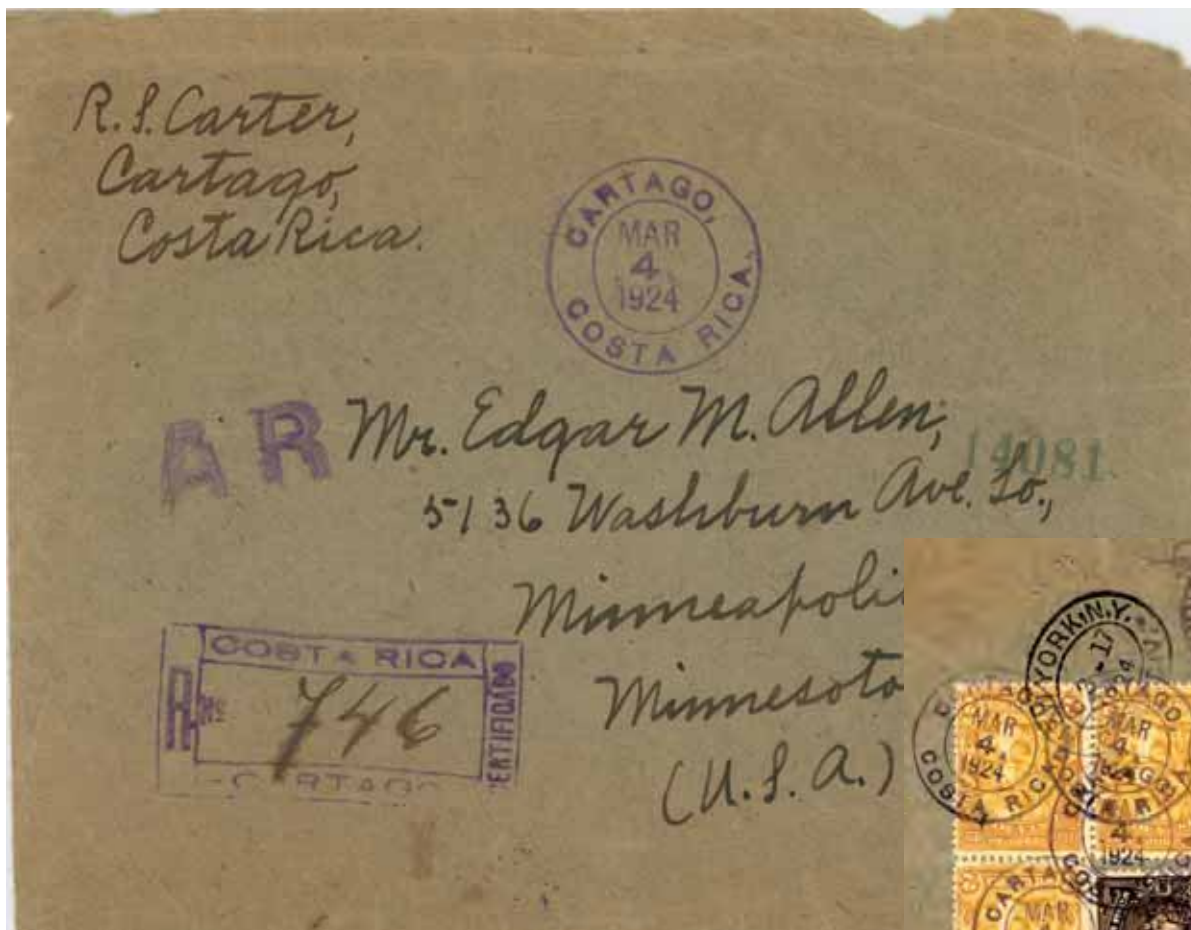 R. S. Carter,
Cartago,
Costa Rica.
CARTAGO,
MAR
4
1924
COSTA RICA.
AR
Mr. Edgar M. Allen,
14081
5136 Washburn Ave. So.,
Minneapoli
Minnesota
(U.S.A.)
COSTA RICA
R
No
746
CERTIFICADO
CARTAGO
YORK, N.Y.
3-17
1924
MAR
4
1924
COSTA RICA
MAR
4
1924
CARTAGO
MAR
4
1924
CARTAGO
MAR